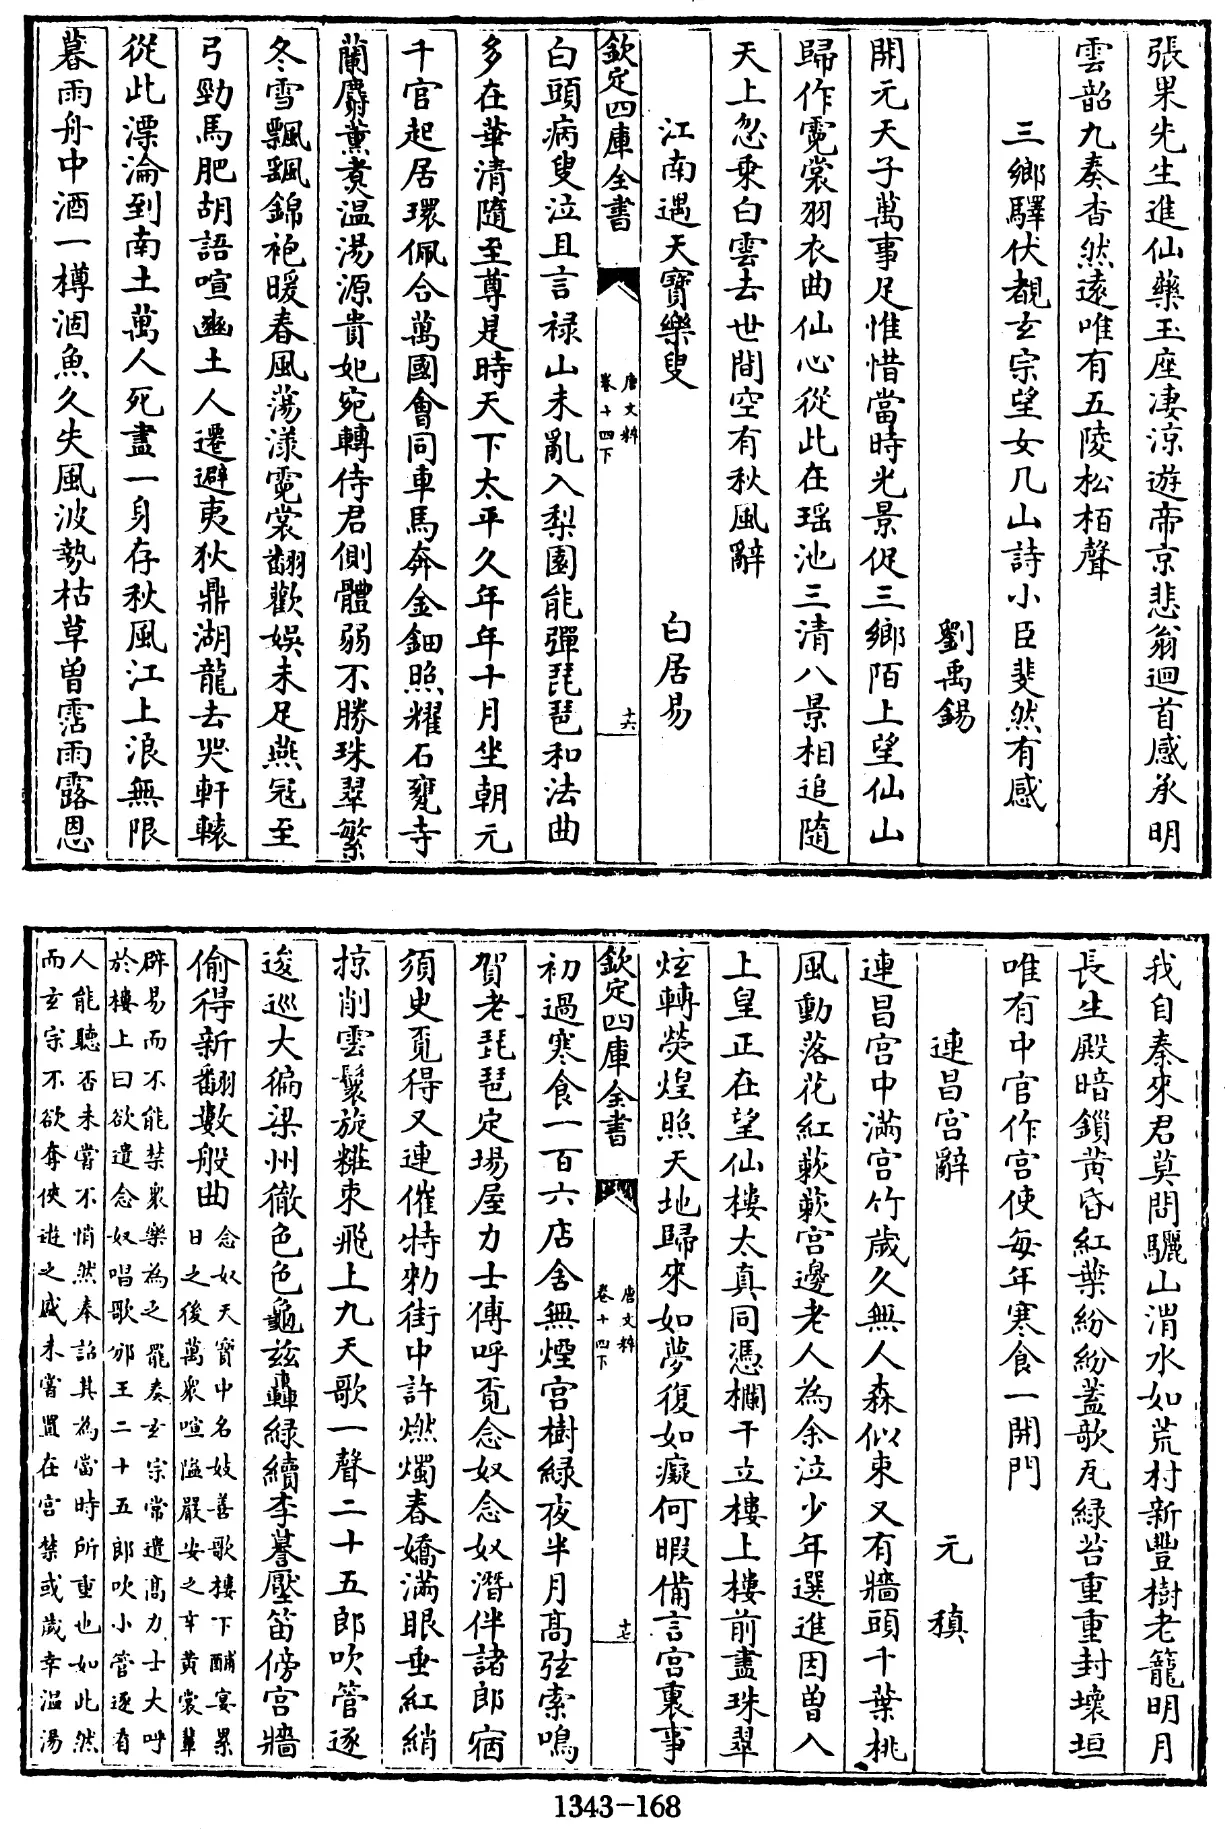 張果先生進仙藥玉座凄涼遊帝京悲翁迴首感承明
雲韶九奏杳然遠唯有五陵松栢聲
三鄉驛伏覩玄宗望女几山詩小臣斐然有感
劉禹錫
開元天子萬事足惟惜當時光景促三鄉陌上望仙山
歸作霓裳羽衣曲仙心從此在瑶池三清八景相追隨
天上忽乗白雲去世間空有秋風辭
江南遇天寳樂叟 白居易
欽定四庫全書 唐文粹 卷十四下 十六
白頭病叟泣且言禄山未亂入梨園能彈琵琶和法曲
多在華清隨至尊是時天下太平久年年十月坐朝元
千官起居環佩合萬國會同車馬奔金鈿照耀石甕寺
蘭麝薰煑温湯源貴妃宛轉侍君側體弱不勝珠翠繁
冬雪飄颻錦袍暖春風蕩漾霓裳翻歡娛未足燕冦至
弓勁馬肥胡語喧豳土人遷避夷狄鼎湖龍去哭軒轅
從此漂淪到南土萬人死盡一身存秋風江上浪無限
暮雨舟中酒一樽涸魚久失風波勢枯草曽霑雨露恩
我自秦來君莫問驪山渭水如荒村新豐樹老籠明月
長生殿暗鎖黄昏紅葉紛紛蓋歌瓦緑苔重重封壊垣
唯有中官作宫使每年寒食一開門
連昌宫辭 元稹
連昌宫中滿宫竹歲久無人森似束又有牆頭千葉桃
風動落花紅蔌蔌宫邊老人為余泣少年選進因曽入
上皇正在望仙樓太真同憑欄干立樓上樓前盡珠翠
炫轉熒煌照天地歸來如夢復如癡何暇備言宫裏事
欽定四庫全書 唐文粹 卷十四下 十七
初過寒食一百六店舍無煙宫樹緑夜半月髙弦索鳴
賀老琵琶定場屋力士傳呼覓念奴念奴潛伴諸郎宿
須臾覓得又連催特勑街中許燃燭春嬌滿眼垂紅綃
掠削雲鬟旋粧束飛上九天歌一聲二十五郎吹管逐
逡廵大徧梁州徹色色龜茲轟緑續李謩壓笛傍宫牆
偷得新翻數般曲 念奴天寳中名妓善歌樓下酺宴累
日之後萬衆喧隘嚴安之辛黄裳輩
辟易而不能禁衆樂為之罷奏玄宗常遣髙力士大呼
於樓上曰欲遣念奴唱歌邠王二十五郎吹小管逐看
人能聽否未嘗不悄然奉詔其為當時所重也如此然
而玄宗不欲奪俠遊之盛未嘗置在宫禁或歲幸温湯
1343-168